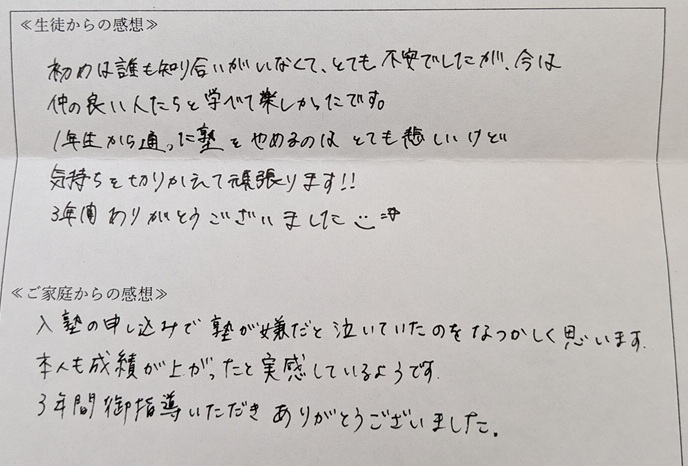 ≪生徒からの感想≫
初めは誰も知り合いがいなくて、とても不安でしたが、今は
仲の良い人たちと学べて楽しかったです。
1年生から通った塾をやめるのはとても悲しいけど
気持ちを切りかえて頑張ります!!
3年間ありがとうございました
≪ご家庭からの感想≫
入塾の申し込みで塾が嫌だと泣いていたのをなつかしく思います.
本人も成績が上がったと実感しているようです.
3年間御指導いただきありがとうございました.